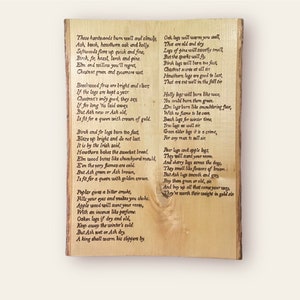 These hardwoods burn well and slowly,
Ash, beech, hawthorn oak and holly.
Softwoods flare up quick and fine,
Birch, fir, hazel, larch and pine.
Elm and willow you'll regret,
Chestnut green and sycamore wet.
Beechwood fires are bright and clear
If the logs are kept a year
Chestnut's only good, they say,
If for long it's laid away
But Ash new or Ash old,
Is fit for a queen with crown of gold.
Birch and fir logs burn too fast,
Blaze up bright and do not last
It is by the Irish said,
Hawthorn bakes the sweetest bread.
Elm wood burns like churchyard mould,
E'en the very flames are cold
But Ash green or Ash brown,
Is fit for a queen with golden crown.
Poplar gives a bitter smoke,
Fills your eyes and makes you choke,
Apple wood will scent your room,
With an incense like perfume.
Oaken logs if dry and old,
Keep away the winter's cold
But Ash wet or Ash dry,
A king shall warm his slippers by.
Oak logs will warm you well,
That are old and dry
Logs of pine will sweetly smell,
But the sparks will fly.
Birch logs will burn too fast,
Chestnut scarce at all sir
Hawthorn logs are good to last,
That are cut well in the fall sir
Holly logs will burn like wax,
You could burn them green,
Elm logs burn like smouldering flax,
With no flame to be seen,
Beech logs for winter time,
Yew logs as well sir
Green elder logs it is a crime,
For any man to sell sir
Pear logs and apple logs,
They will scent your room,
And cherry logs across the dogs,
They smell like flowers of broom
But Ash logs smooth and grey,
Buy them green or old, sir
And buy up all that come your way,
They're worth their weight in gold sir